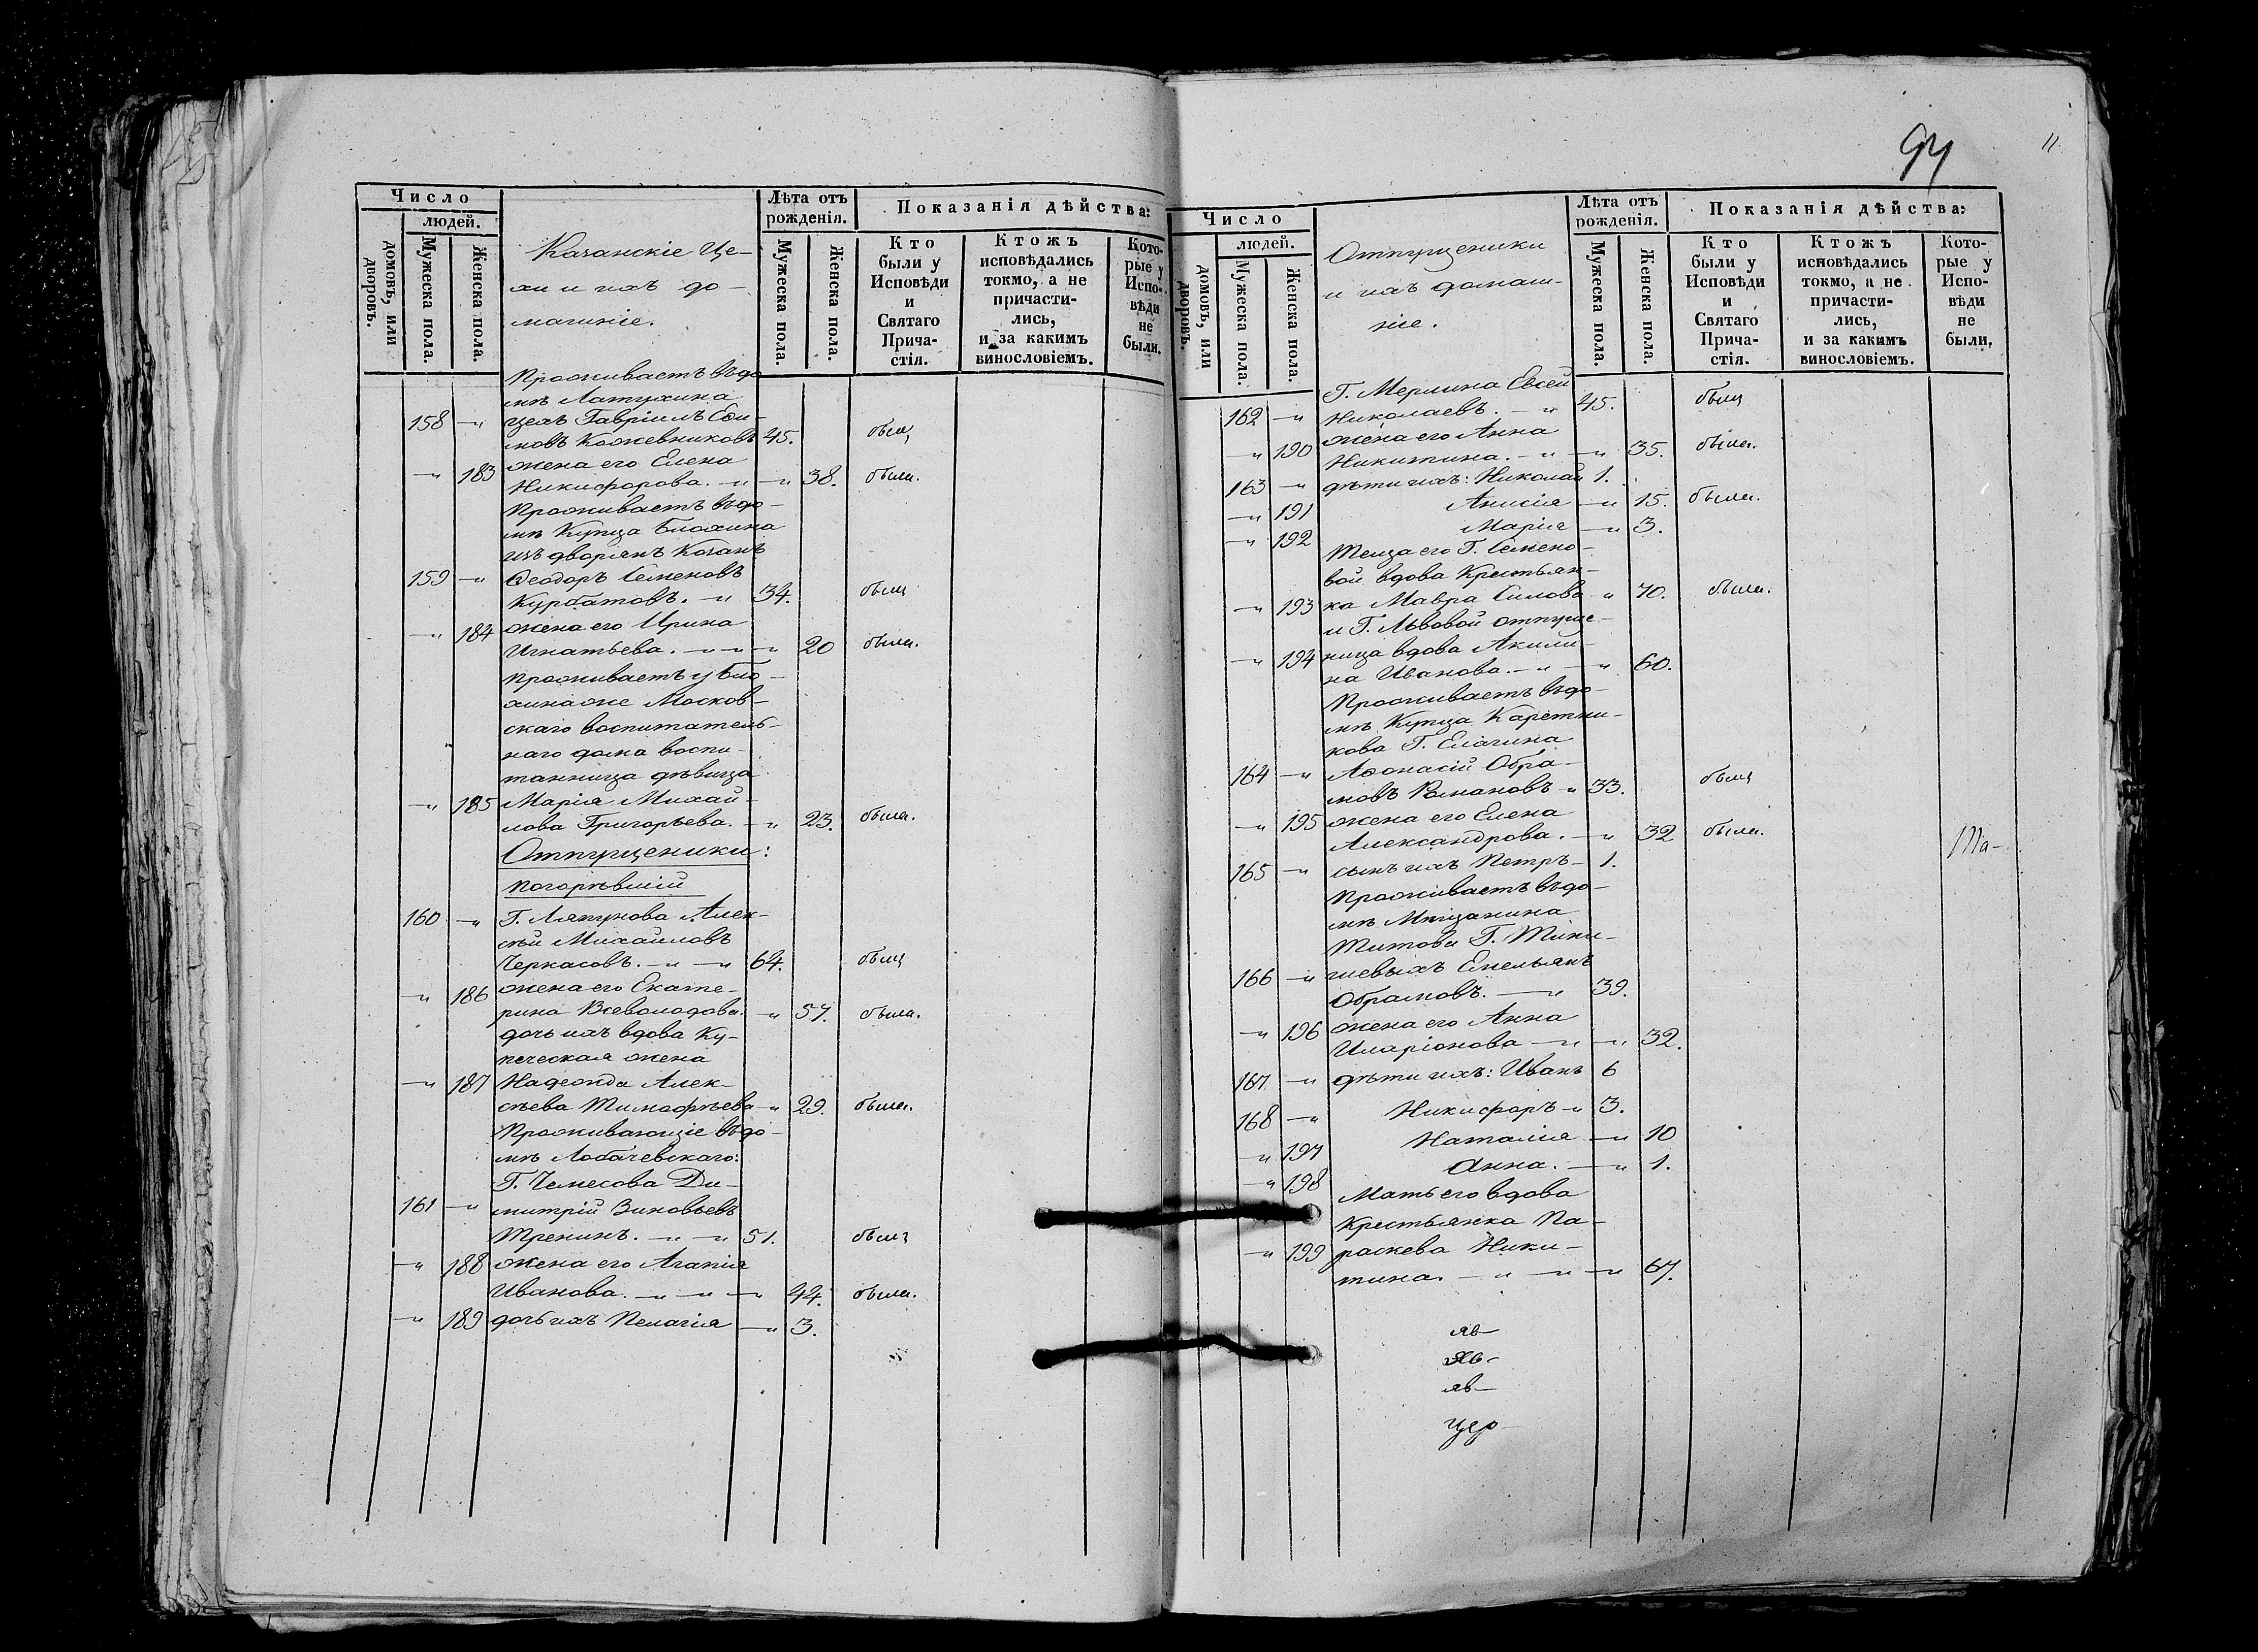 Число
людей.
домовъ, или дворовъ.
Мужеска пола.
Женска пола.
Казанскіе Це-
хи и ихъ до-
машніе.
Лѣта отъ рожденія.
Мужеска пола.
Женска пола.
Показанія дѣйства:
Кто были у Исповѣди и Святаго Прича-стія.
Ктожъ исповѣдались токмо, а не причасти-лись, и за какимъ винословіемъ.
Кото-рые у Испо-вѣди не были.
Проживаетъ въ до-
мѣ Латухина
158 —„ цехъ Гавріилъ Ефи-
мовъ Кожевниковъ 45. былъ
—„ 183 жена его Елена
Никифорова. —„ —„ 38. была.
Проживаетъ въ до-
мѣ Купца Блохина
изъ дворянъ Казанъ
159 —„ Ѳеодоръ Семеновъ
Курбатовъ. —„ 34. былъ
—„ 184 жена его Ирина
Игнатьева. —„ —„ 20 была.
Проживаетъ у Бло-
хина же Москов-
скаго воспитатель-
наго дома воспи-
танница дѣвица
—„ 185 Марія Михай-
лова Григорьева. —„ 23. была.
Отпущеники:
погорѣвшій
160 —„ Г. Ляпунова Алек-
сѣй Михаиловъ
Черкасовъ. —„ —„ 64. былъ
—„ 186 жена его Екате-
рина Всеволодова. —„ 57. была.
дочь ихъ вдова Ку-
печеская жена
—„ 187 Надежда Алек-
сѣева Тимофѣева —„ 29. была.
Проживающіе въ до-
мѣ Лобачевскаго:
Г. Чемесова Ди-
161 —„ митрій Зиновьевъ
Тренинъ. —„ —„ 51. былъ
—„ 188 жена его Агапія
Иванова. —„ —„ —„ 44. была.
—„ 189 дочь ихъ Пелагія —„ 3.
94
11.
Число
людей.
домовъ, или дворовъ.
Мужеска пола.
Женска пола.
Отпущеники
и ихъ домаш-
ніе.
Лѣта отъ рожденія.
Мужеска пола.
Женска пола.
Показанія дѣйства:
Кто были у Исповѣди и Святаго Прича-стія.
Ктожъ исповѣдались токмо, а не причасти-лись, и за какимъ винословіемъ.
Кото-рые у Испо-вѣди не были.
Г. Мерлина Евсей
162 —„ Николаевъ. —„ 45. былъ
жена его Анна
—„ 190 Никитина. —„ —„ 35. была.
163 —„ дѣти ихъ: Николай 1.
—„ 191 Анисія —„ 15. была.
—„ 192 Марія —„ 3.
Теща его Г. Семено-
вой вдова Крестьян-
—„ 193 ка Мавра Силова —„ 70. была.
и Г. Львовой отпуще-
—„ 194 ница вдова Акили-
на Иванова. —„ —„ 60.
Проживаетъ въ до-
мѣ Купца Каретни-
кова Г. Елагина
164 —„ Аѳонасій Обра-
мовъ Романовъ —„ 33. былъ
—„ 195 жена его Елена
Александрова. —„ 32 была.
165 —„ сынъ ихъ Петръ — 1.
Та-
Проживаетъ въ до-
мѣ Мѣщанина
Титова Г. Тини-
166 —„ шевыхъ Емельянъ
Обрамовъ. —„ 39.
—„ 196 жена его Анна
Иларіонова —„ —„ 32.
167 —„ дѣти ихъ: Иванъ 6
168 —„ Никифоръ —„ 3.
—„ 197 Наталія —„ 10
—„ 198 Анна. —„ 1.
Мать его вдова
Крестьянка Па-
—„ 199 раскева Ники-
тина. —„ —„ —„ 67.
яв-
яв-
яв-
цер-